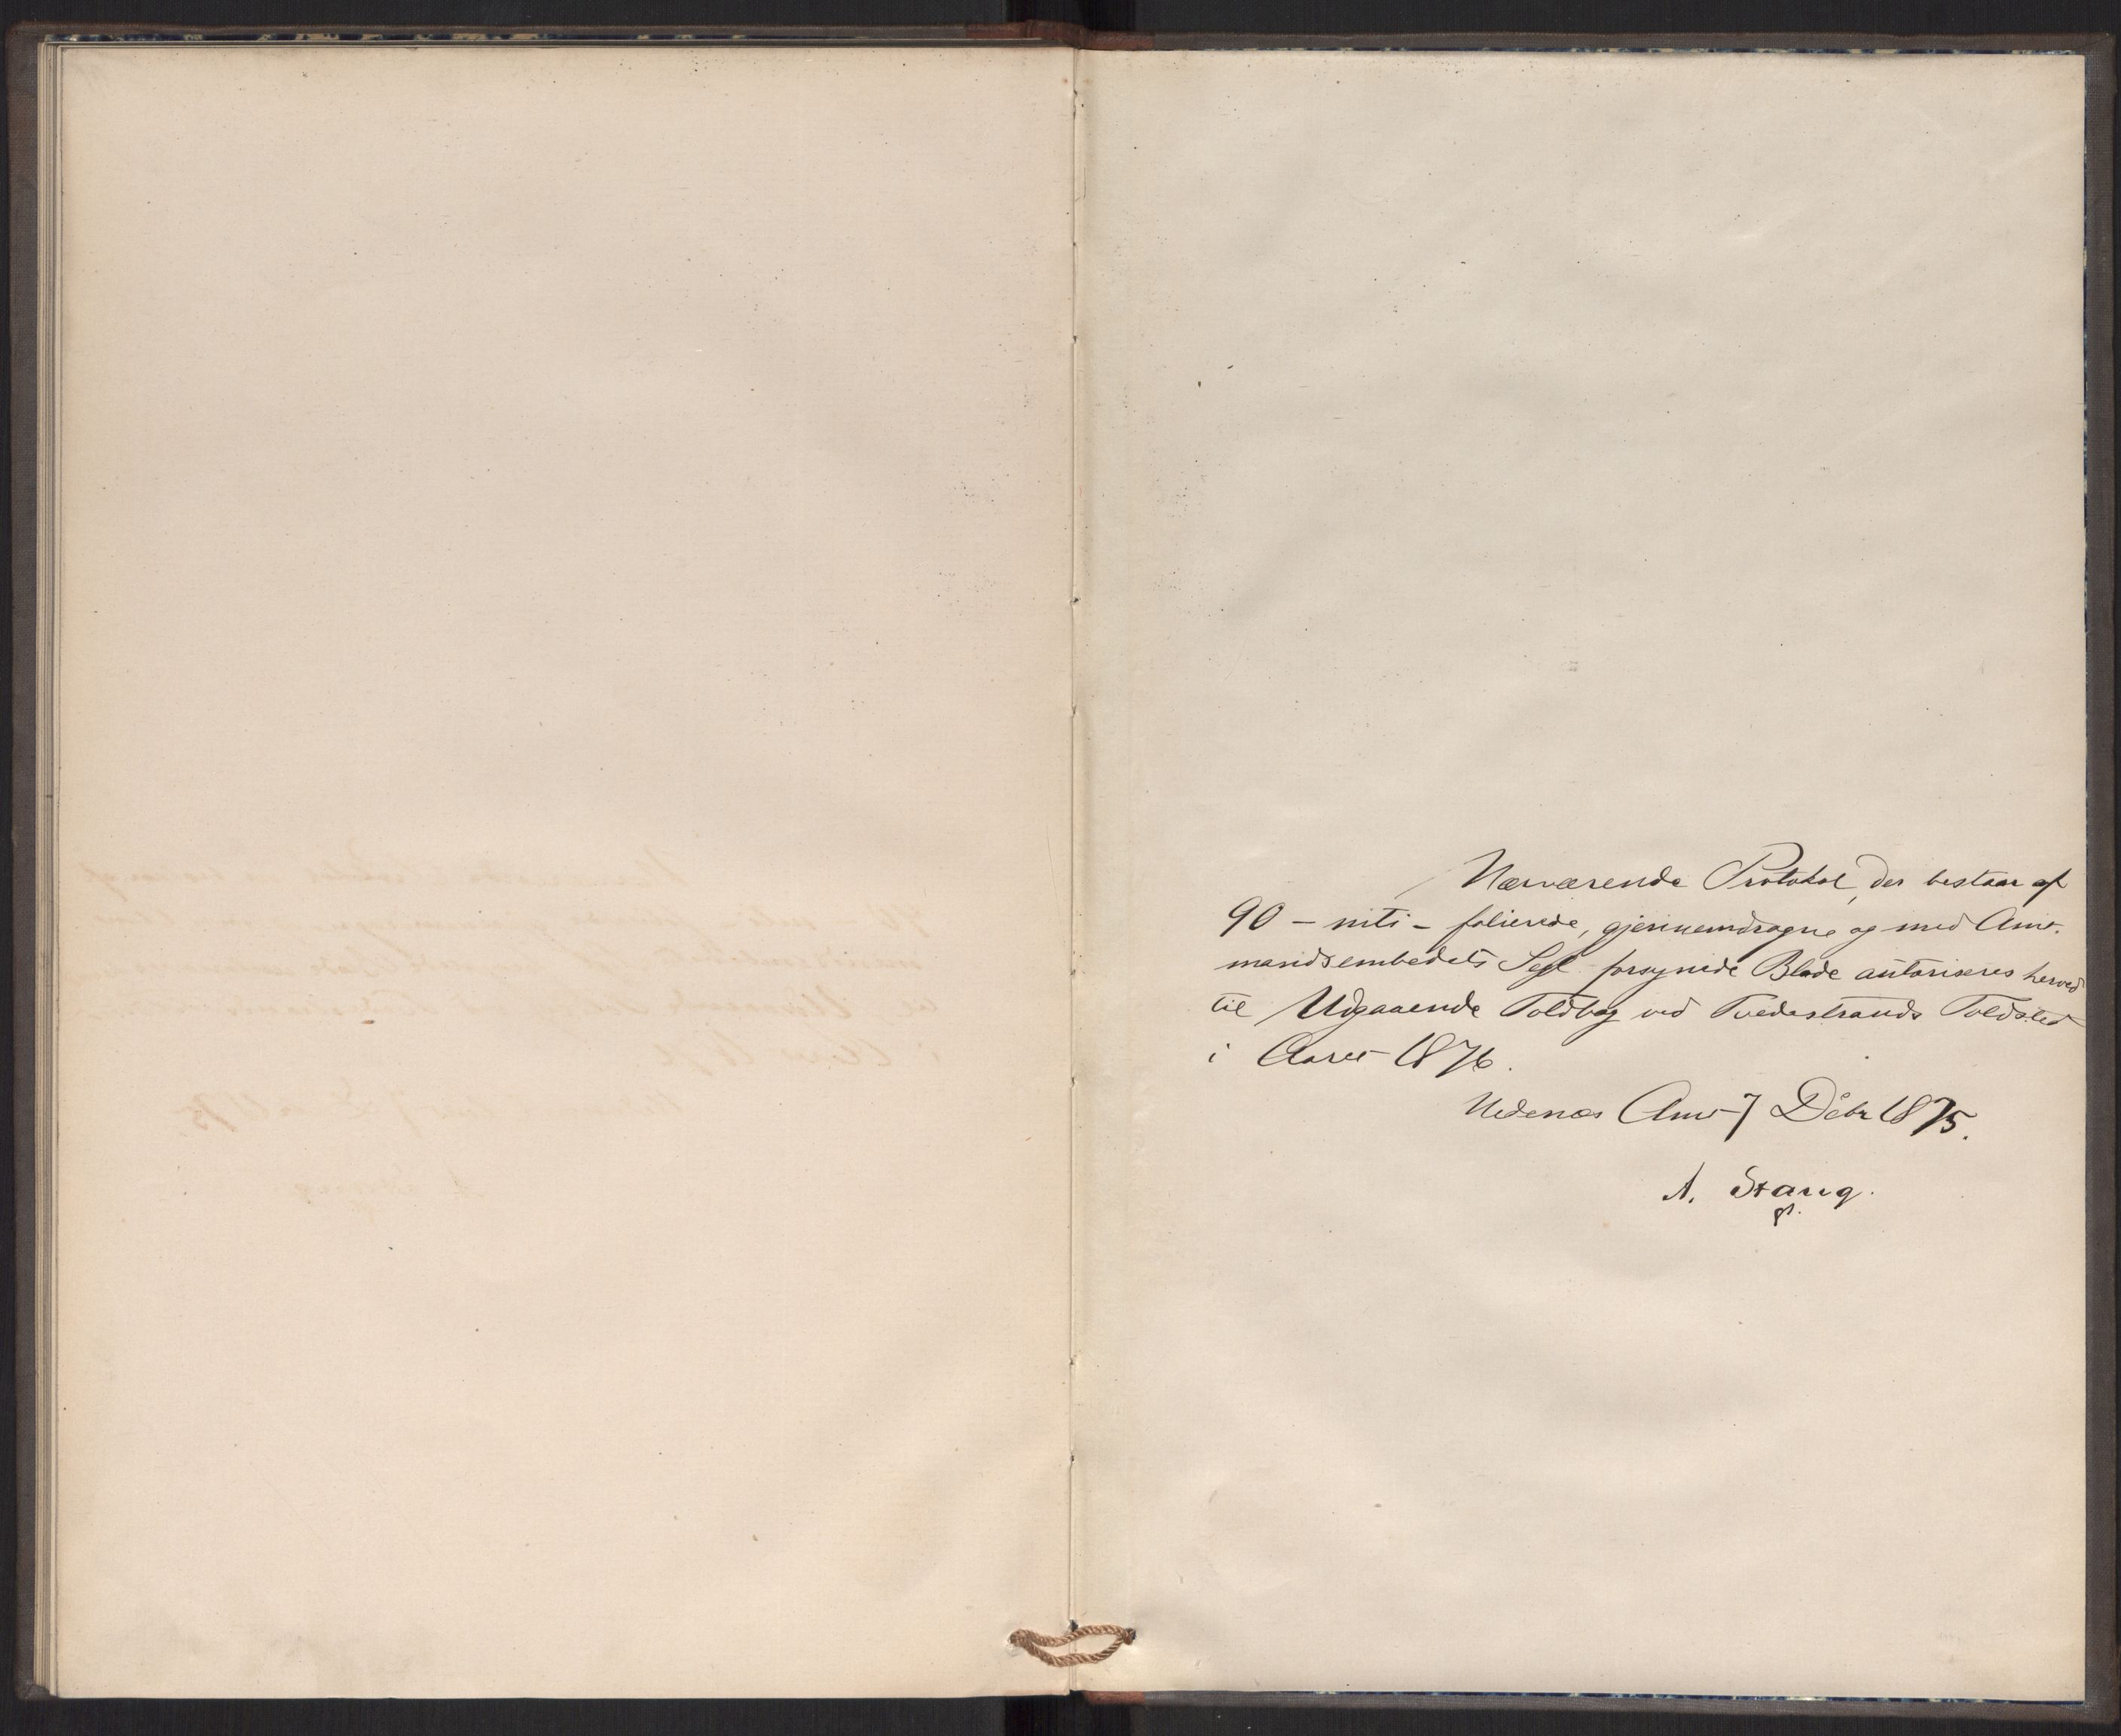 Nærværende Protokol, der bestaar af
90 - niti - folierede, gjennemdragne og med Amt-
mandsembedets Segl forsynede Blade autoriseres herved
til Udgaaende Toldbog ved Tvedestrands Toldsted
i Aaret 1876.
Nedenæs Amt 7 Debr 1875.
A. Stang.